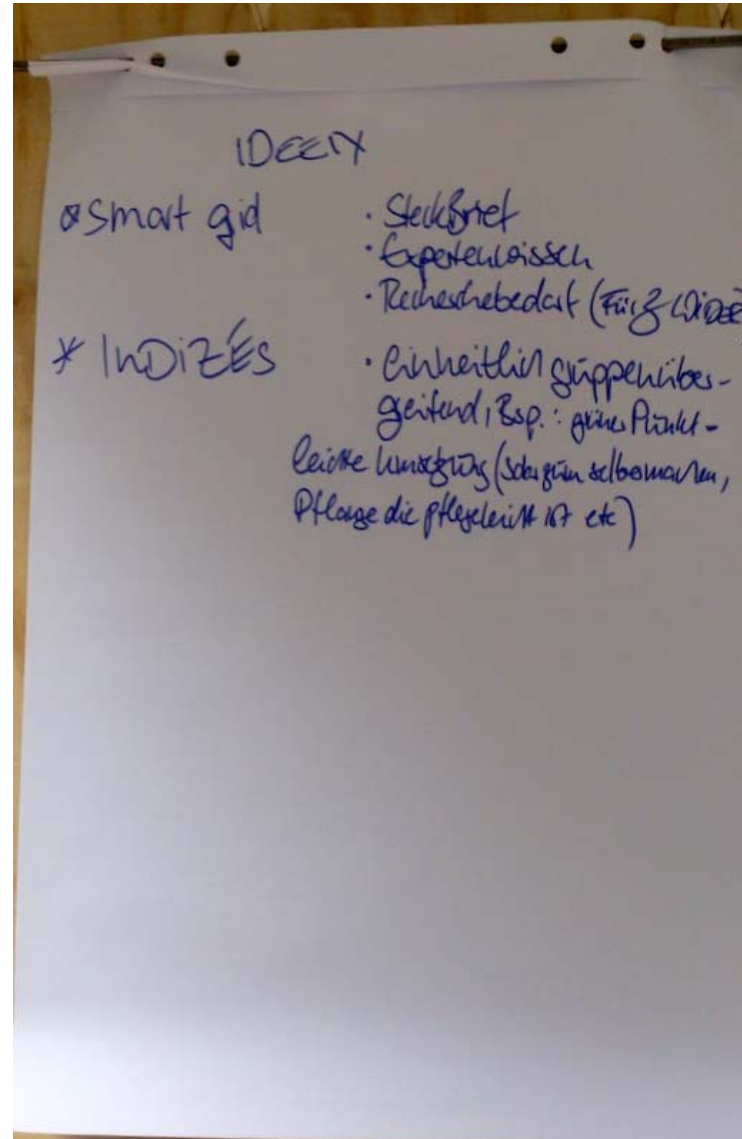 IDEEN
* Smart gid
· SteckBrief
· Expertenwissen
· Recherchebedarf (Für
* InDiZES
· Einheitlich gruppenüber-
greifend, Bsp.: grüner Punkt -
leichte Umsetzung ( zum selbermachen,
Pflanze die pflegeleicht ist etc)